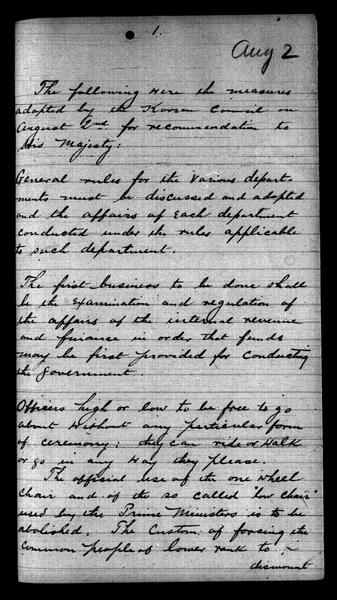 1.
Aug 2
The following were the measures
adopted by the Korean Council on
August 2nd for recommendation to
His Majesty:
General rules for the various depart-
ments must be discussed and adopted
and the affairs of each department
conducted under the rules applicable
to such department.
The first business to be done shall
be the examination and regulation of
the affairs of the internal revenue
and finance in order that funds
may be first provided for conducting
the government.
Officers high or low to be free to go
about without any particular form
of ceremony; they can ride or walk
or go in any way they please.
The official use of the one wheel
chair and of the so called "low chair"
used by the Prime Ministers is to be
abolished. The custom of forcing the
common people of lower rank to
dismount